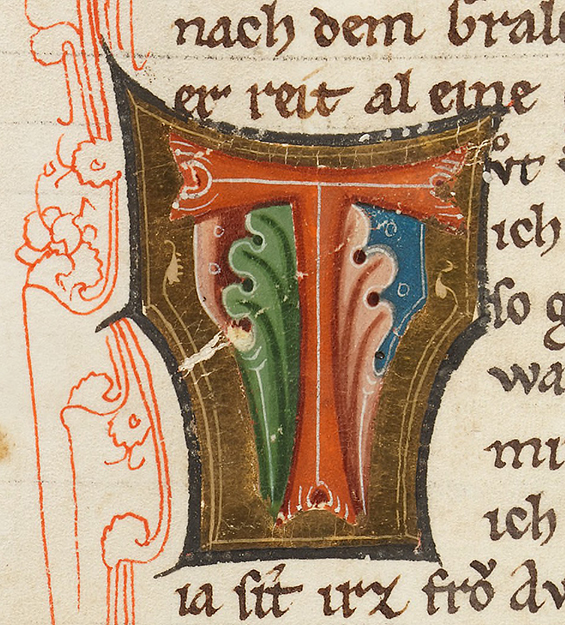 nach dem Gral
er reit al eine
T
ich
so g
wa
mi
ich
ia sit irz frō